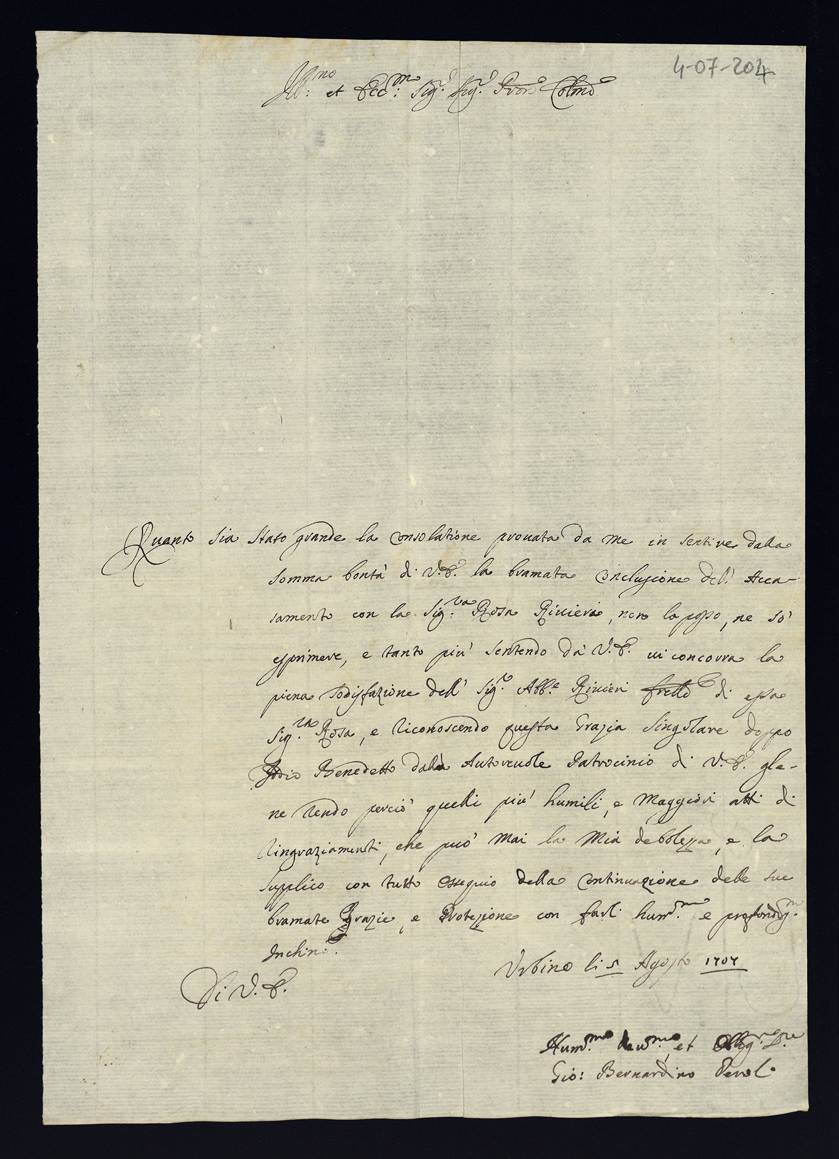 4-07-204
Ill:mo et Ecc:mo Sig.r Sig.r Pron Colmo
Quanto sia stato grande la consolatione prouata da me in sentire dalla
somma bontà di V.E. la bramata conclusione del' Acca-
samento con la Sig.ra Rosa Riuiera, non lo posso, ne sò
esprimere, e tanto più sentendo dà V.E. ui concorra la
piena sodisfazione dell' Sig.r Abb.e Riuieri frello di essa
Sig.ra Rosa, e riconoscendo questa Grazia singolare doppo
Iddio Benedetto dalla Autoreuole Patrocinio di V.E. glie-
ne rendo perciò quelli più humili, e Maggiori atti di
ringraziamenti, che può mai la Mia debolezza, e la
supplico con tutto ossequio della continuazione delle sue
bramate Grazie, e Protezione con farli hum.ma e profondiss.ma
Inchin.
Vrbino li 5 Agosto 1707
Di V.E.
Hum.mo deu.mo, et Obblig.mo S.re
Gio: Bernardino